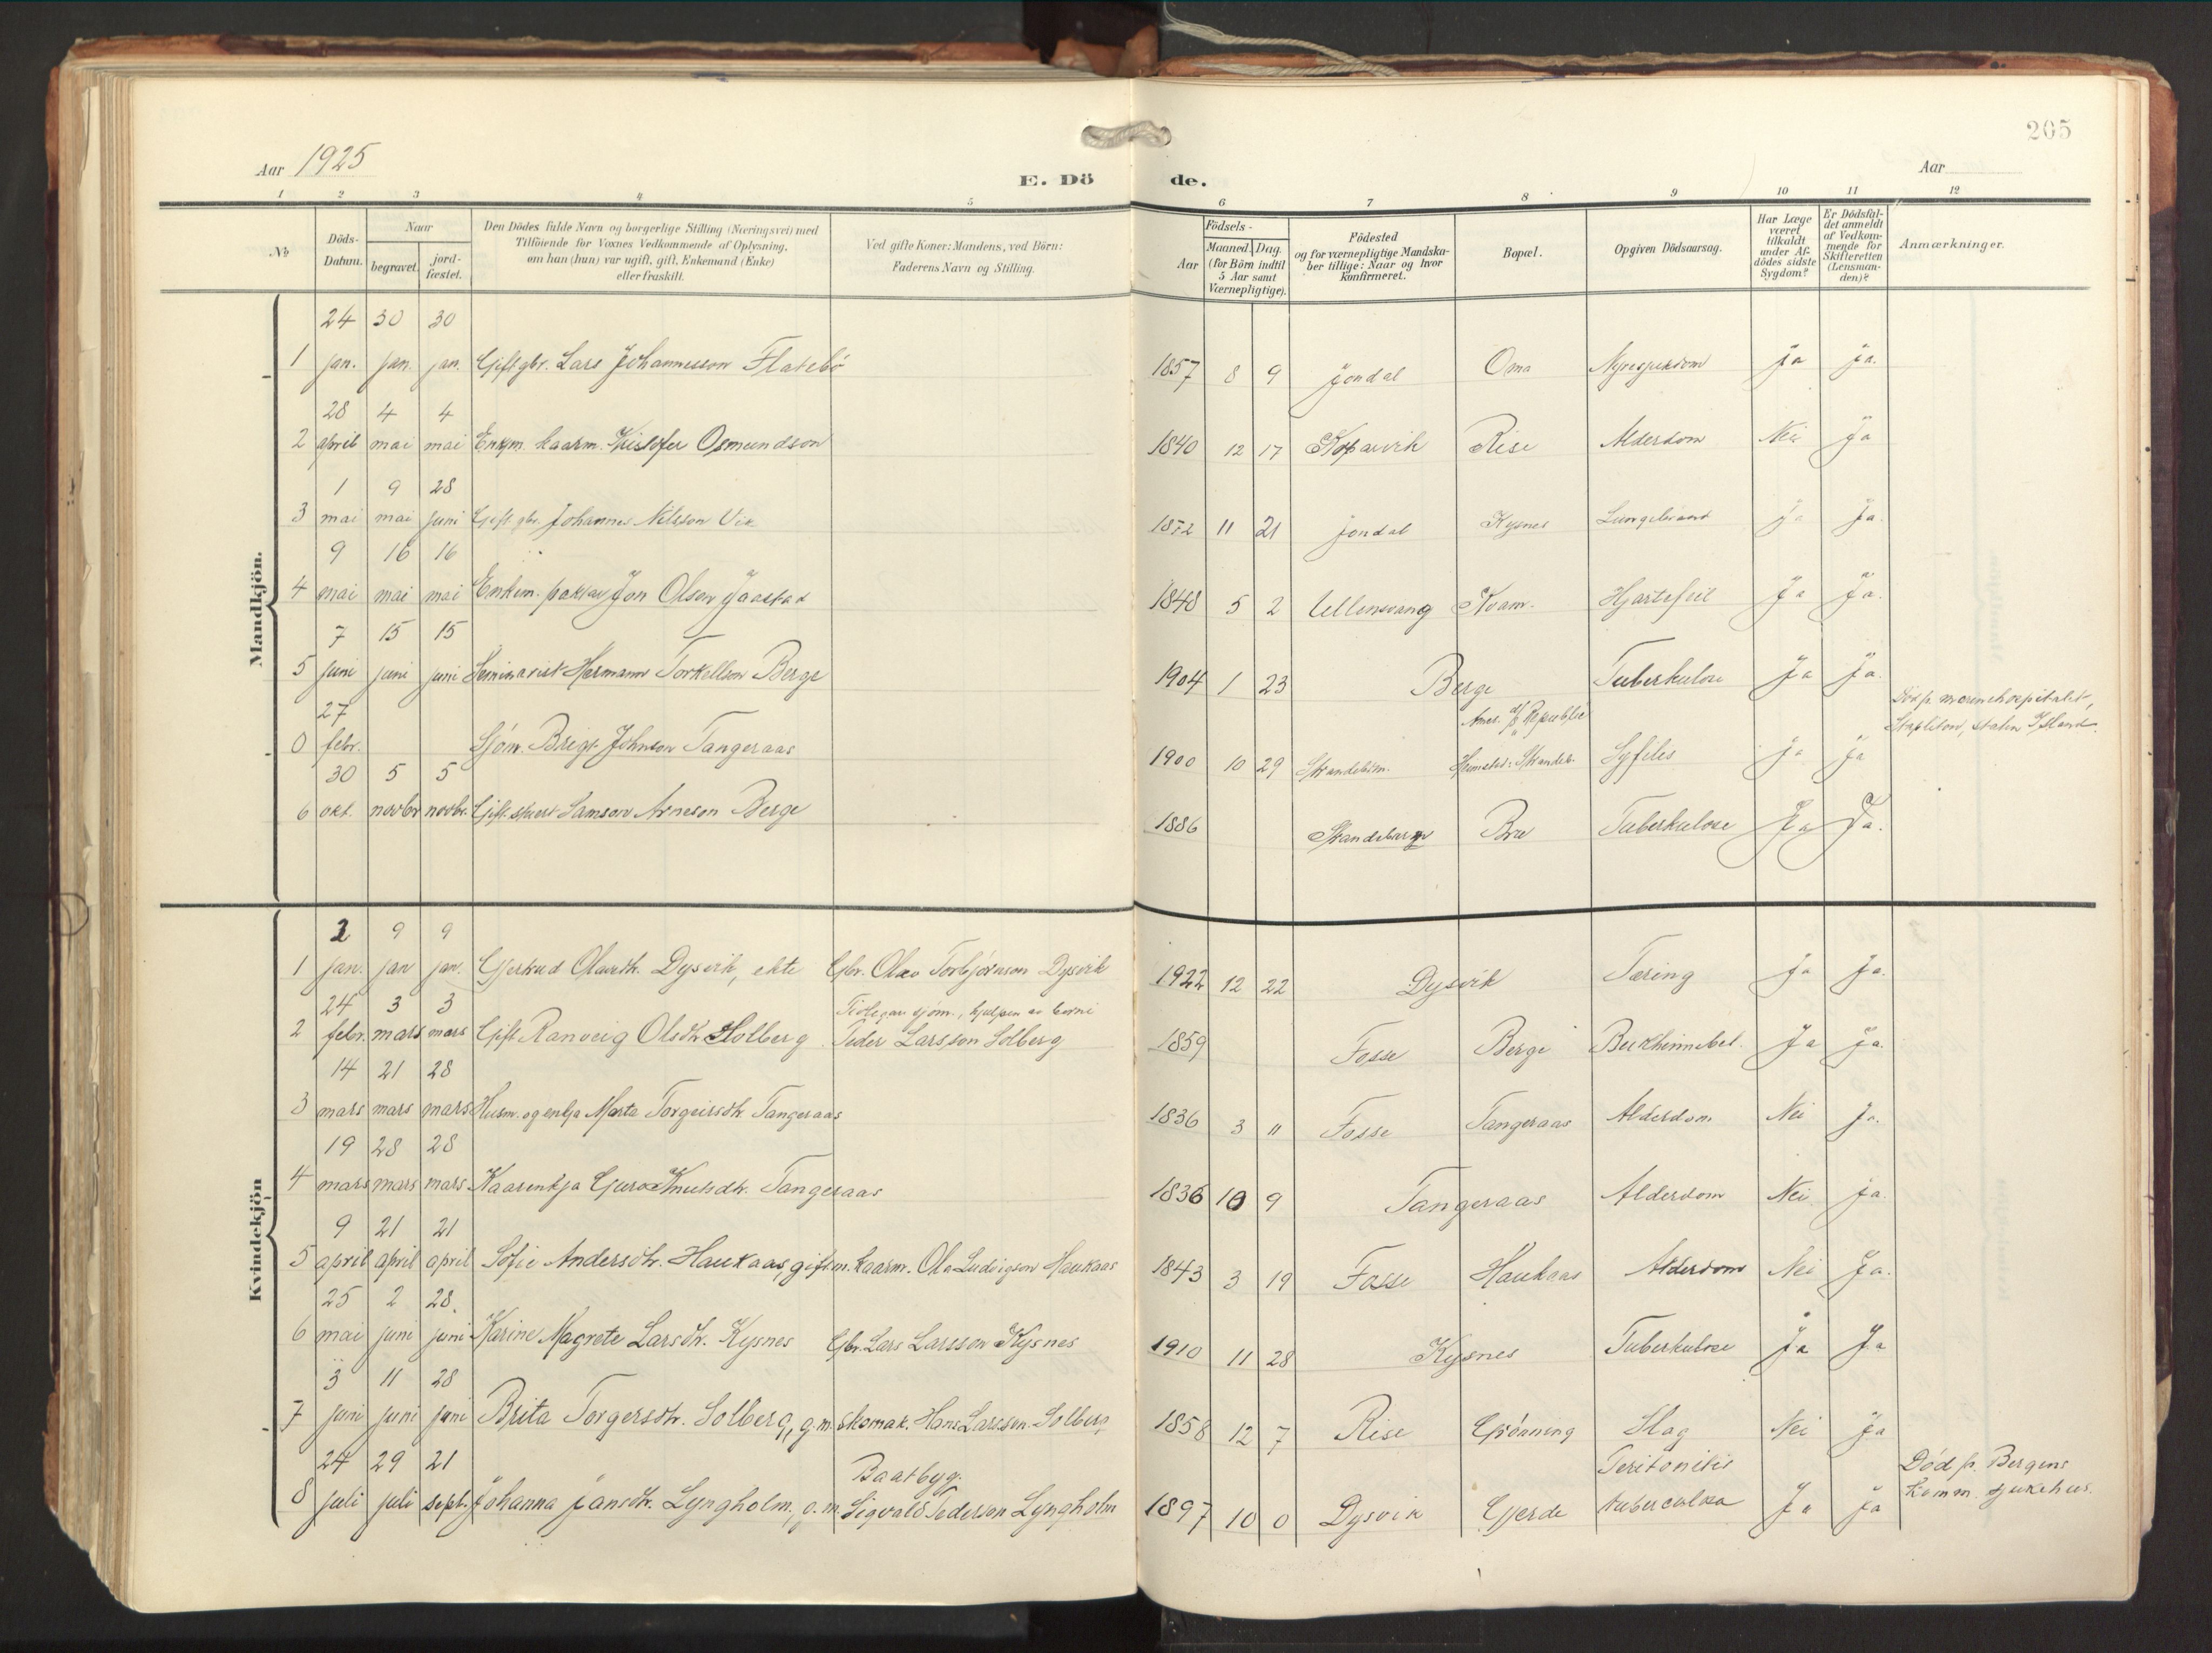 205
Aar 1925
E. Dö de.
Aar
1 2 3 4 5 6 7 8 9 10 11 12
No
Döds-Datum.
Naar
begravet. jord-fæstet.
Den Dödes fulde Navn og borgerlige Stilling (Næringsvei) med
Tilföiende for Voxnes Vedkommende af Oplysning,
om han (hun) var ugift, gift, Enkemand (Enke)
eller fraskilt.
Ved gifte Koner: Mandens, ved Börn:
Faderens Navn og Stilling.
Födsels-
Aar Maaned. Dag.
(for Börn indtil
5 Aar samt
Værnepligtige).
Födested
og for værnepligtige Mandska-
ber tillige: Naar og hvor
konfirmeret.
Bopæl.
Opgiven Dödsaarsag.
Har Læge
været
tilkaldt
under Af-
dödes sidste
Sygdom?
Er Dödsfal-
det anmeldt
af Vedkom-
mende for
Skifteretten
(Lensman-
den)?
Anmærkninger.
Mandkjön.
24 30 30
1 jan. jan. jan. Gift gbr. Lars Johannesson Flatebö 1857 8 9 Jondal Oma Nyresjukdom Ja Ja.
28 4 4
2 april mai mai Enkm. kaarm. Kristofer Osmundson 1840 12 17 Kopervik Rise Alderdom Nei Ja
1 9 28
3 mai mai juni Gift gbr. Johannes Nilsson Vik 1872 11 21 Jondal Kysnes Lungebrand Ja Ja.
9 16 16
4 mai mai mai Enkem. Jon Olsen Jaastad 1848 5 2 Ullensvang Kvam. Hjartefeil Ja Ja.
7 15 15
5 juni juni juni Seminarist Hermann Torkellson Berge 1904 1 23 Berge Tuberkulose Ja Ja.
27 Amer. Republic Död p. marinehospitalet,
0 febr. Sjöm. Brigt Johnson Tangeraas 1900 10 29 Strandebarm. Heimsted: Strandeb. Syfiles Ja Ja Stapleton, Staten Island.
30 5 5
6 okt. novbr novbr. Gift Samson Arneson Berge 1886 Strandebarm Bru Tuberkulose Ja Ja.
Kvindekjön
2 9 9
1 jan. jan jan. Gjertrud Olavsdtr. Dysvik, ekte Gbr. Olav Torbjörnson Dysvik 1922 12 22 Dysvik Tæring Ja Ja.
24 3 3 Tidlegare sjöm., hjelpen av borni
2 febr. mars mars Gift Ranveig Olsdtr. Solberg Peder Larsson Solberg 1859 Fosse Berge Bukhinnebet. Ja Ja.
14 21 28
3 mars mars mars Husm. og enkja Marta Torgeirsdtr. Tangeraas 1836 3 11 Fosse Tangeraas Alderdom Nei Ja.
19 28 28
4 mars mars mars Kaarenkja Guro Knutsdtr. Tangeraas 1836 10 9 Tangeraas Alderdom Nei Ja.
9 21 21
5 april april april Sofie Andersdtr. Haukaas, gift m. kaarm. Ola Ludvigson Haukaas 1843 3 19 Fosse Haukaas Alderdom Nei Ja.
25 2 28.
6 mai juni juni Karine Magrete Larsdtr. Kysnes Gbr. Lars Larsson Kysnes 1910 11 28 Kysnes Tuberkulose Ja Ja
3 11 28
7 juni juni juni Brita Torgersdtr. Solberg, g. m. Skomak. Hans Larsson Solberg 1858 12 7 Rise Grönning Slag Nei Ja
24 29 21 Baatbyg. Peritonitis Död p. Bergens
8 juli juli sept. Johanna Jansdtr. Lyngholm, g. m. Sigvald Pederson Lyngholm 1897 10 0 Dysvik Gjerde tuberculosa Ja Ja Komm. sjukehus.